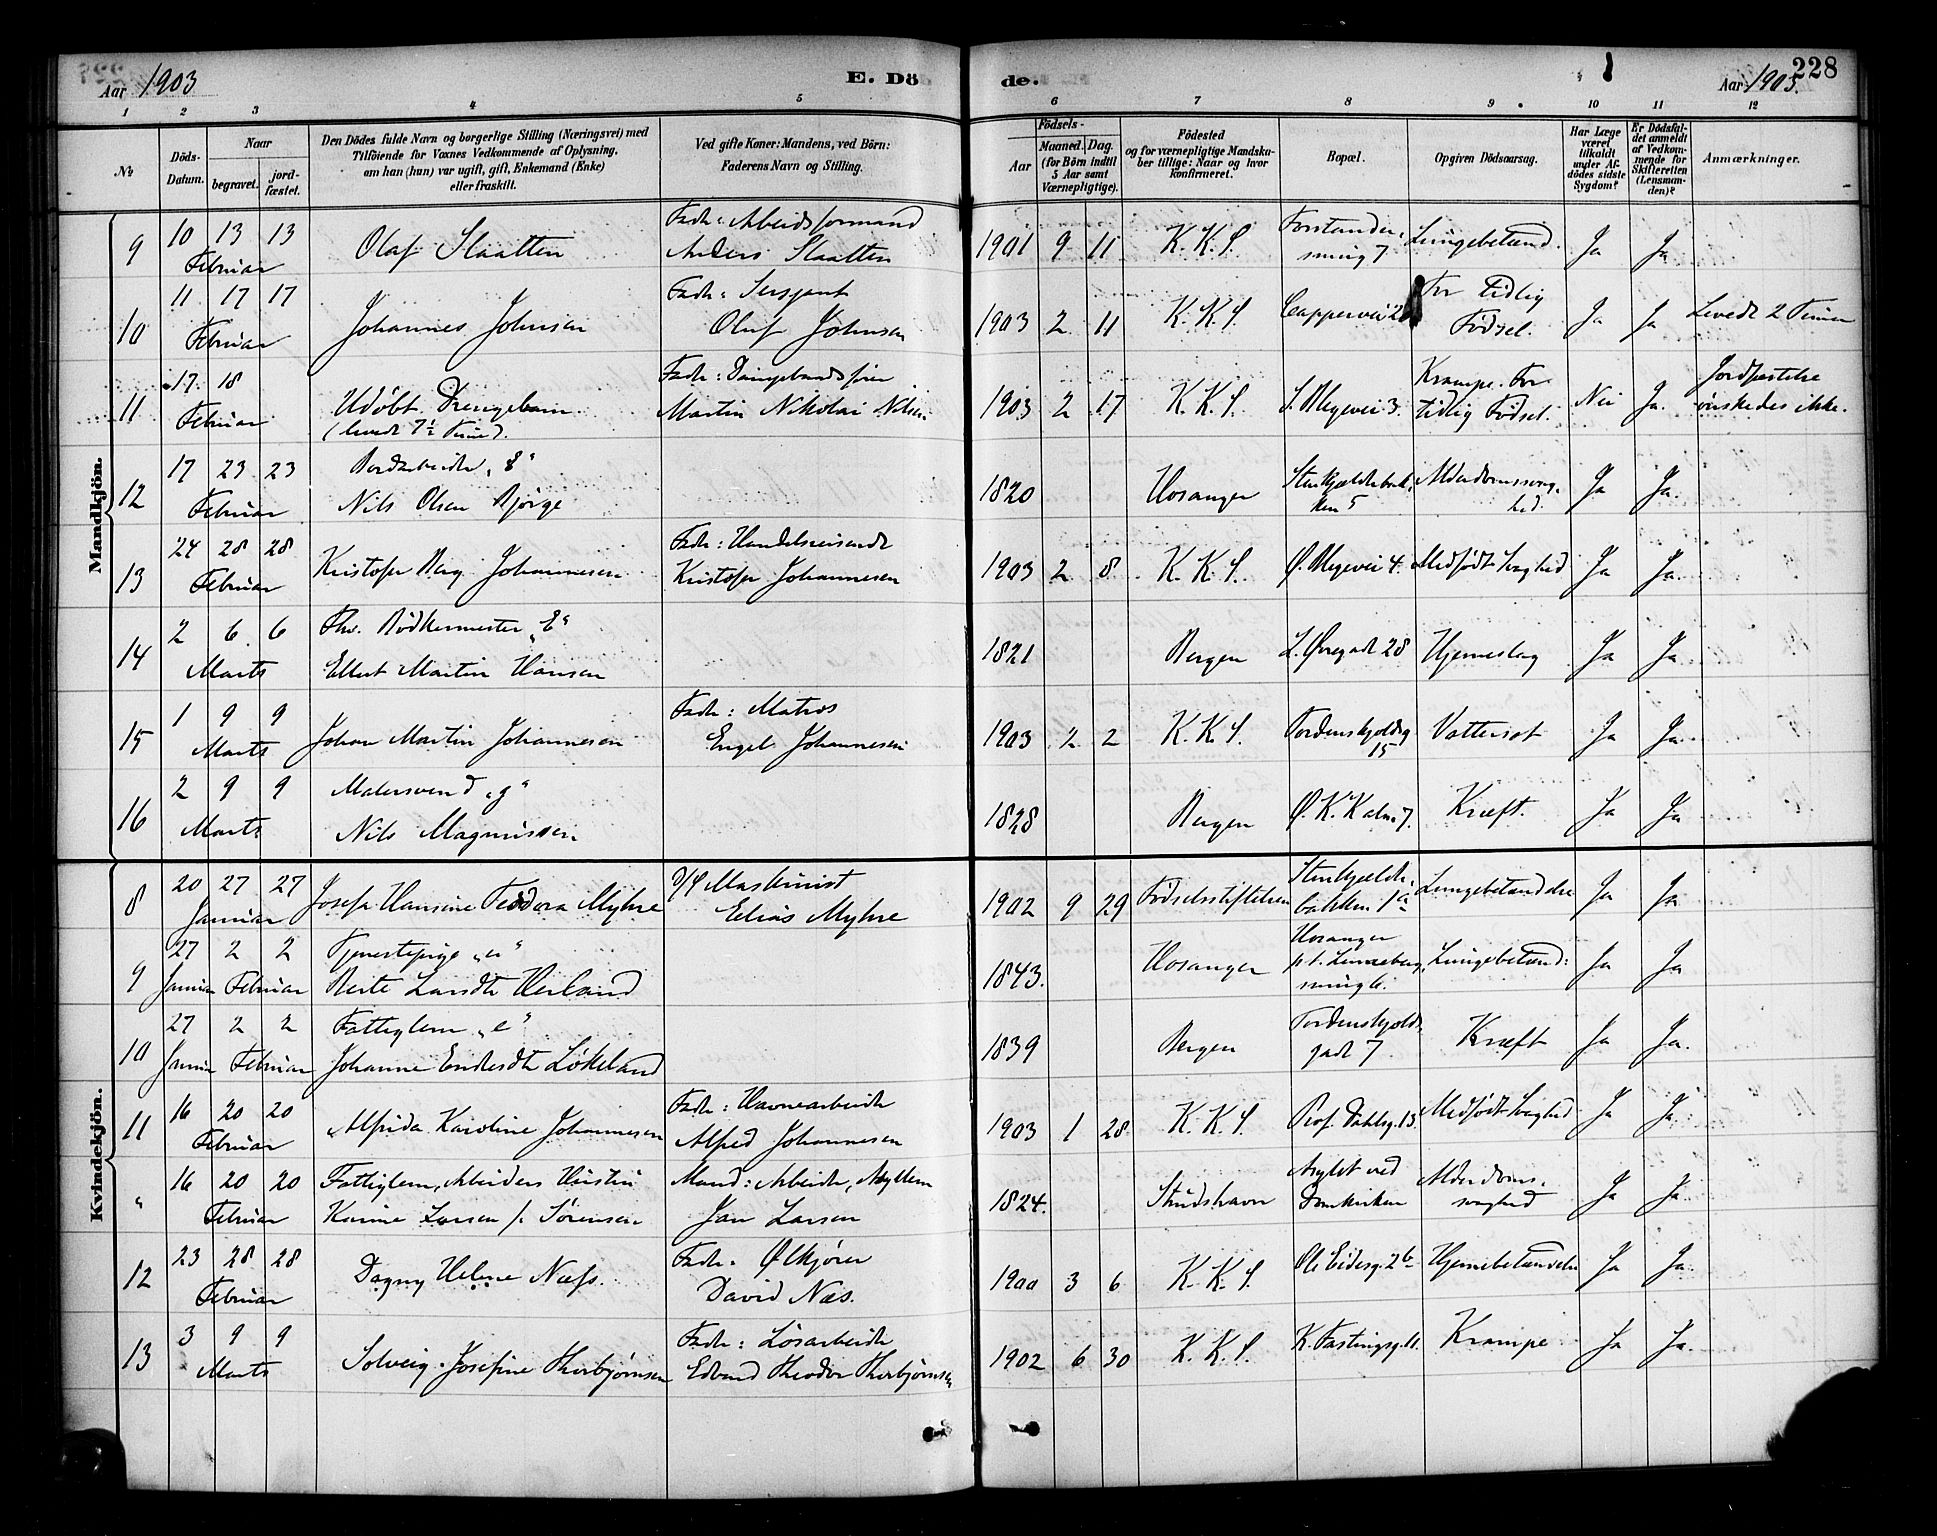 Aar 1903
E. Dö
de.
228
Aar 1903.
1 2 3 4 5 6 7 8 9 10 11 12
No
Döds-
Datum.
Naar
begravet.
jord-
fæstet.
Den Dödes fulde Navn og borgerlige Stilling (Næringsvei) med
Tilföiende for Voxnes Vedkommende af Oplysning,
om han (hun) var ugift, gift, Enkemand (Enke)
eller fraskilt.
Ved gifte Koner: Mandens, ved Börn:
Faderens Navn og Stilling.
Födsels-
Aar
Maaned.
Dag.
(for Börn indtil
5 Aar samt
Værnepligtige).
Födested
og for værnepligtige Mandska-
ber tillige: Naar og hvor
konfirmeret.
Bopæl.
Opgiven Dödsaarsag.
Har Læge
været
tilkaldt
under Af-
dödes sidste
Sygdom?
Er Dödsfal-
det anmeldt
af Vedkom-
mende for
Skifteretten
(Lensman-
den)?
Anmærkninger.
Mandkjön.
9 10 13 13 Februar
Olaf Slaatten
Fadr: Arbeidsformand
Anders Slaatten
1901 9 11 K. K. S.
Lungebetænd. Ja Ja
10 11 17 17 Februar
Johannes Johnsen
Fadr: Sersjant
Oluf Johnsen
1903 2 11 K. K. S. Cappesvei
For tidlig
Födsel. Ja Ja Levede 2 Timer
11 17 18 Februar
Udöbt Drengebarn
(levede 7½ Time).
Martin Nikolai Nilsen
1903 2 17 K. K. S. S. Blegevei 3.
Krampe. For
tidlig Födsel. Nei Ja.
Jordfæstelse
önskedes ikke.
12 17 23 23 Februar
Nils Olsen Bjørge
1820 Hosanger
Stenkjelderbak-
ken 5
Alderdomssvag-
hed. Ja Ja.
13 24 28 28 Februar
Kristofer Berg Johannesen
Fadr: Handelsreisende
Kristofer Johannesen
1903 2 8 K. K. S. Ø. Blegevei 4. Medfödt Svaghed Ja Ja.
14 2 6 6 Marts
Fhv. Bödkermester „E“
Ellert Martin Hansen
1821 Bergen L. Øvregade 28 Hjerneslag Ja Ja
15 1 9 9 Marts
Johan Martin Johannesen
Fadr: Matros
Engel Johannesen
1903 2 2 K. K. S.
Tordenskjoldsg.
15
Vattersot Ja Ja
16 2 9 9 Marts
Malersvend „g“
Nils Magnussen
1828 Bergen Ø. K. Kalm. 7. Kræft. Ja Ja
Kvindekjön.
8 20 27 27 Januar
Josefa Hansine Teodora Myhre
Maskinist
Elias Myhre
1902 9 29 Födselsstiftelsen
Stenkjelder-
bakken 1a
Lungebetændelse Ja Ja.
9 27 2 2 Januar Februar
Tjenestepige „u“
Berte Larsdtr Herland
1843. Hosanger
Hosanger
Lungebetænd: Ja Ja
10 27 2 2 Januar Februar
Fattiglem „e“
Johanne Løkeland
1839 Bergen
Tordenskjolds
gade 7
Kræft Ja Ja.
11 16 20 20 Februar
Alfrida Karoline Johannesen
Fadr: Havnearbeider
Alfred Johannesen
1903 1 28 K. K. S. Prof. Dahlsg. 13. Medfödt Svaghed Ja Ja
„ 16 20 20 Februar
Fattiglem, Arbeiders Hustru
Karine Larsen f. Sørensen
Mand: Arbeider,
Jan Larsen
1824. Strudshavn
Asylet ved
Domkirken
Alderdoms-
svaghed Ja Ja
12 23 28 28 Februar
Dagny Helene Næss.
Fadr. Ølkjører
David Næs.
1900 3 6 K. K. S. Hjernebetændelse Ja Ja.
13 3 9 9 Marts
Solveig Josefine Thorbjørnsen
Fadr: Løsarbeider
Edvard Theodor Thorbjørnsen
1902 6 30 K. K. S. K. Fastingsg. 11. Krampe Ja Ja.